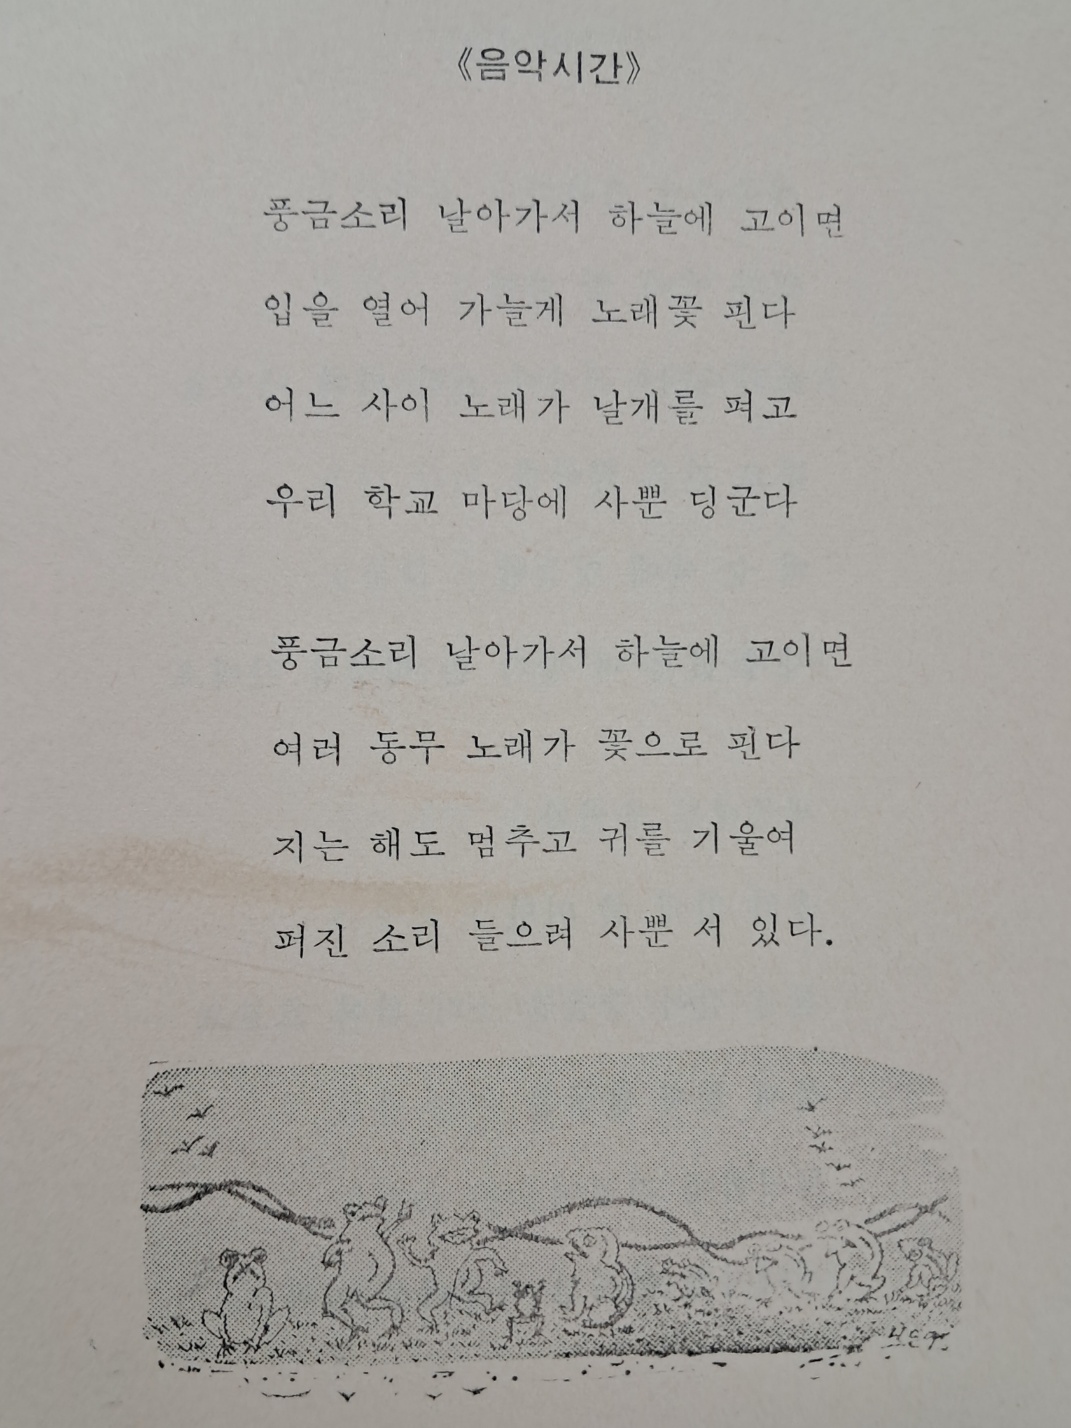 《음악시간》
풍금소리 날아가서 하늘에 고이면
입을 열어 가늘게 노래꽃 핀다
어느 사이 노래가 날개를 펴고
우리 학교 마당에 사뿐 딩군다
풍금소리 날아가서 하늘에 고이면
여러 동무 노래가 꽃으로 핀다
지는 해도 멈추고 귀를 기울여
퍼진 소리 들으려 사뿐 서 있다.